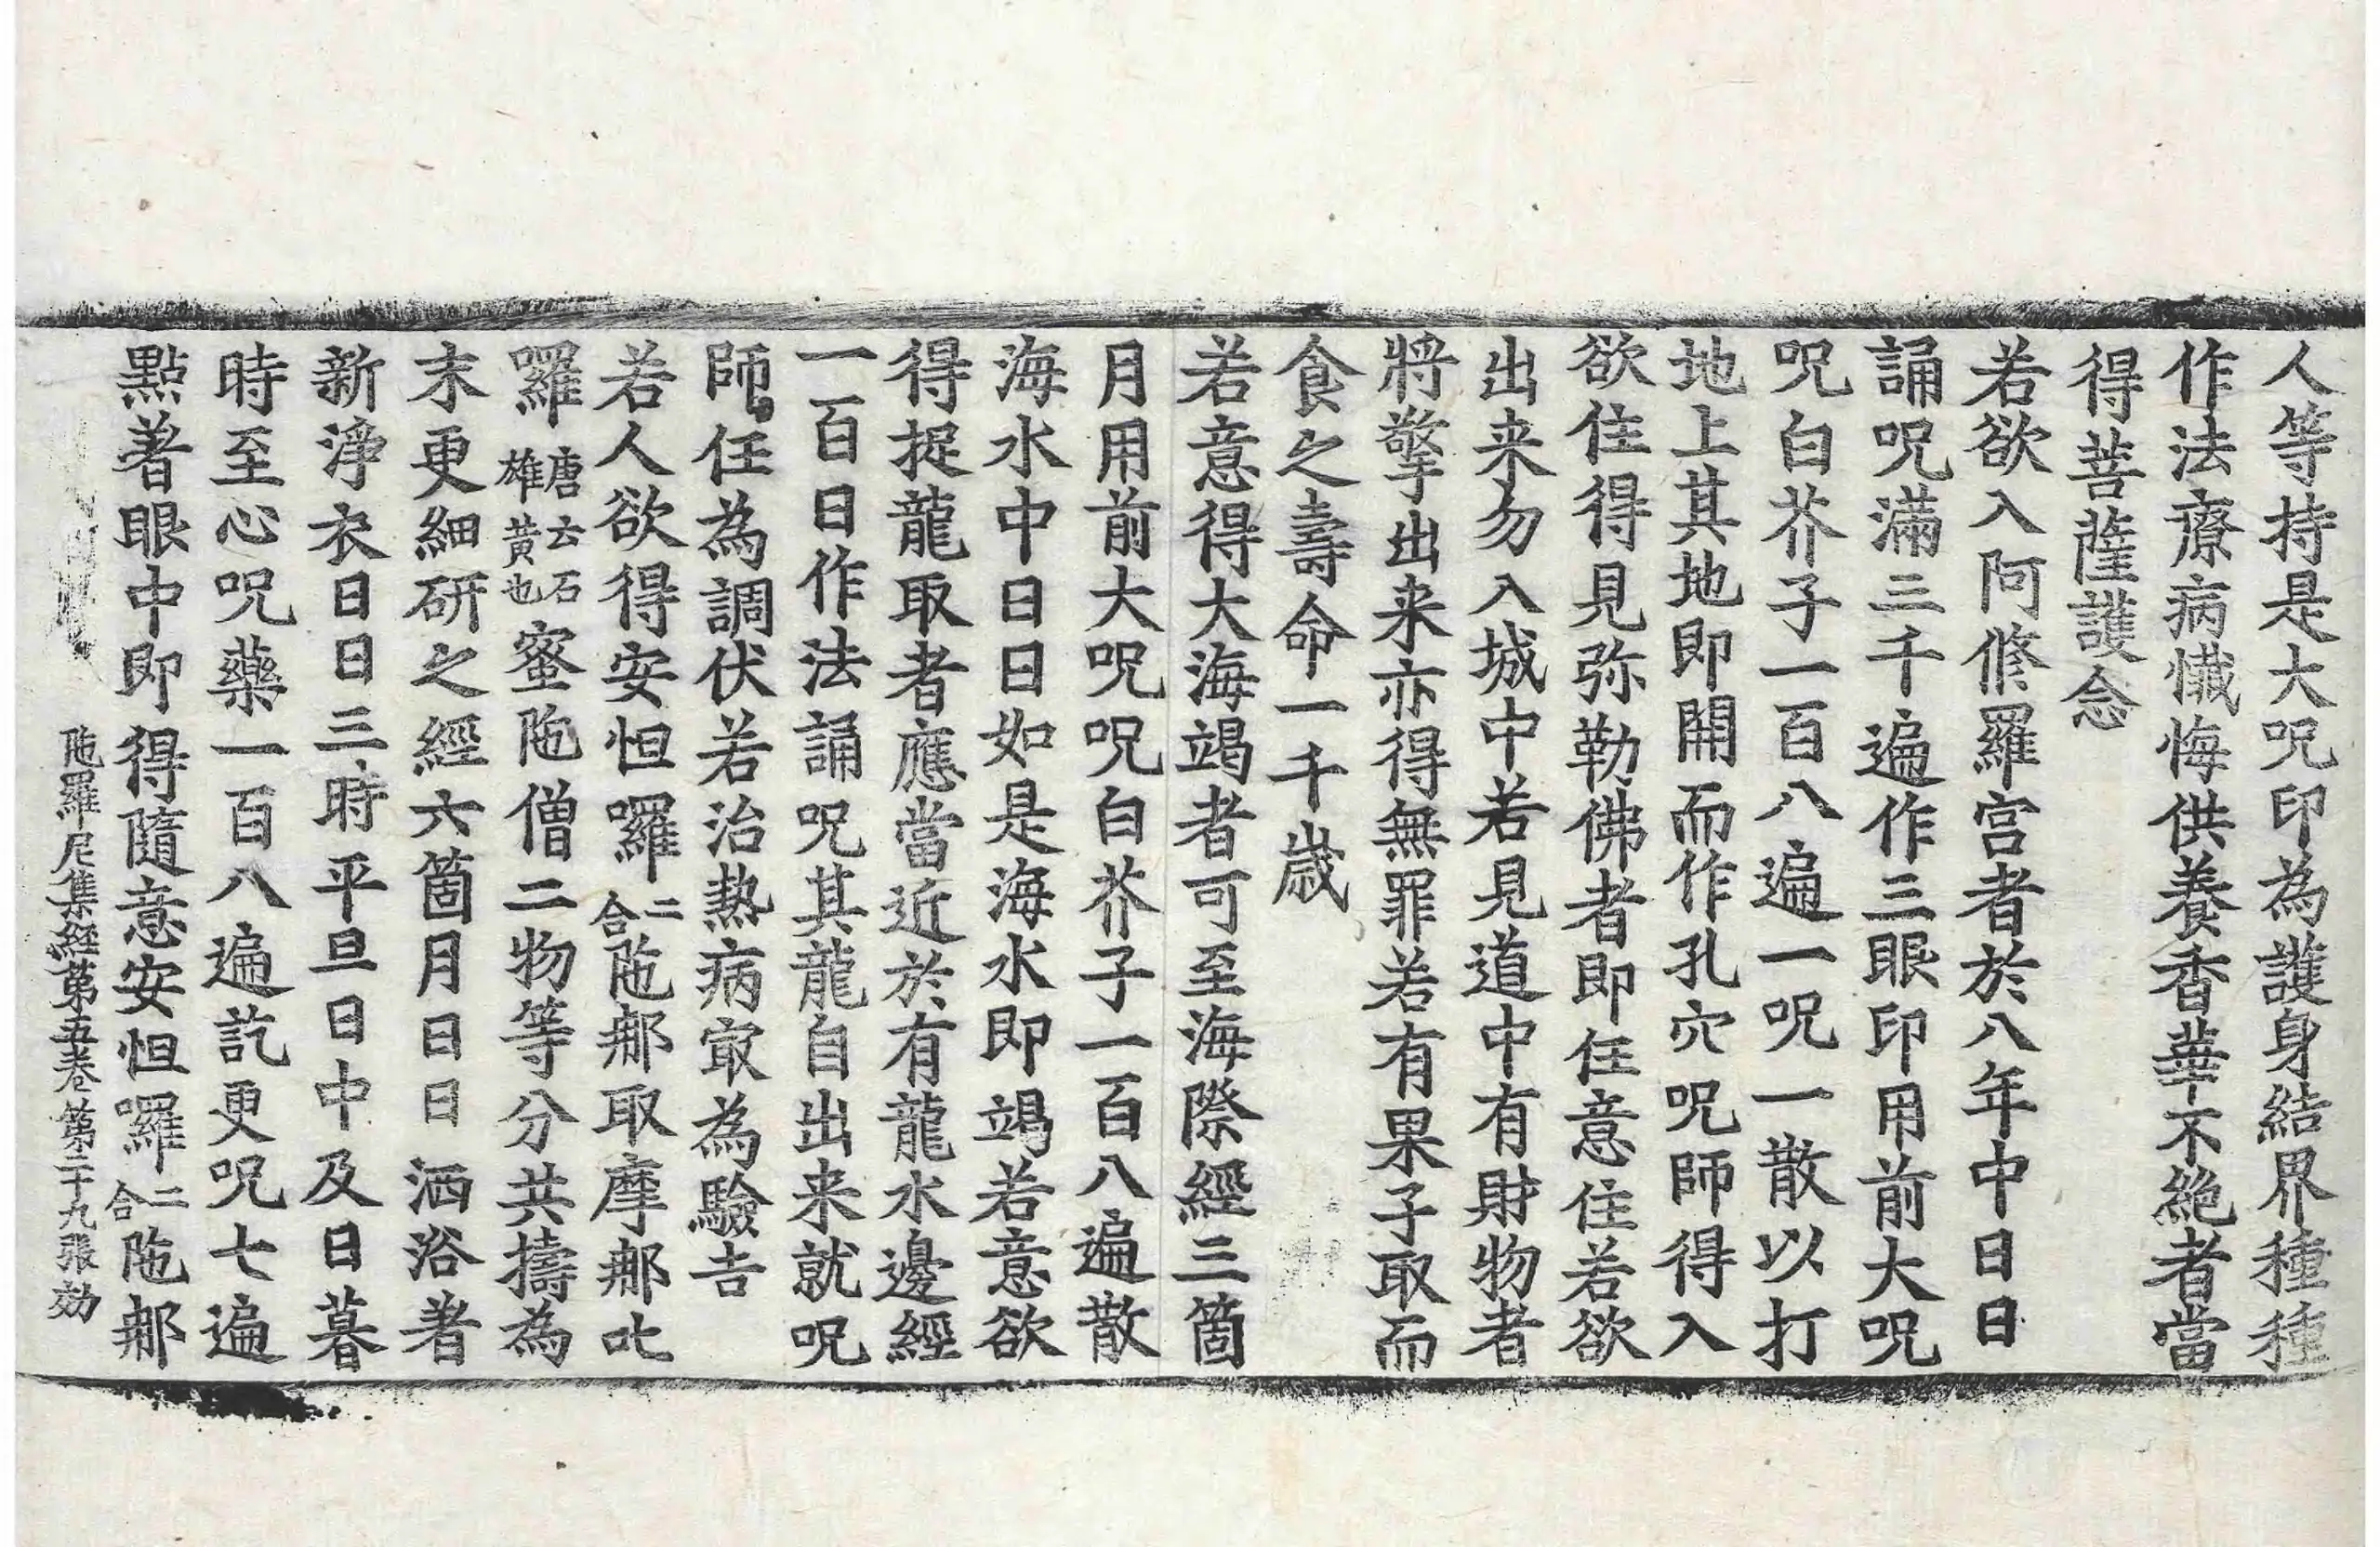 人等持是大呪印為護身結界種種
作法療病懺悔供養香華不絶者當
得菩薩護念
若欲入阿修羅宮者於八年中日日
誦呪滿三千遍作三眼印用前大呪
呪白芥子一百八遍一呪一散以打
地上其地即開而作孔穴呪師得入
欲住得見弥勒佛者即任意住若欲
出来勿入城中若見道中有財物者
將擎出来亦得無罪若有果子取而
食之壽命一千歳
若意得大海竭者可至海際經三箇
月用前大呪呪白芥子一百八遍散
海水中日日如是海水即竭若意欲
得捉龍取者應當近於有龍水邊經
一百日作法誦呪其龍自出来就呪
師任為調伏若治熱病㝡為驗吉
若人欲得安怛囉二合陁郍取摩郍叱
囉唐云石雄黄也蜜陁僧二物等分共擣為
末更細研之經六箇月日日洒浴著
新淨衣日日三時平旦日中及日暮
時至心呪藥一百八遍訖更呪七遍
點著眼中即得隨意安怛囉二合陁郍
陁羅尼集経苐五卷 第二十九張 効